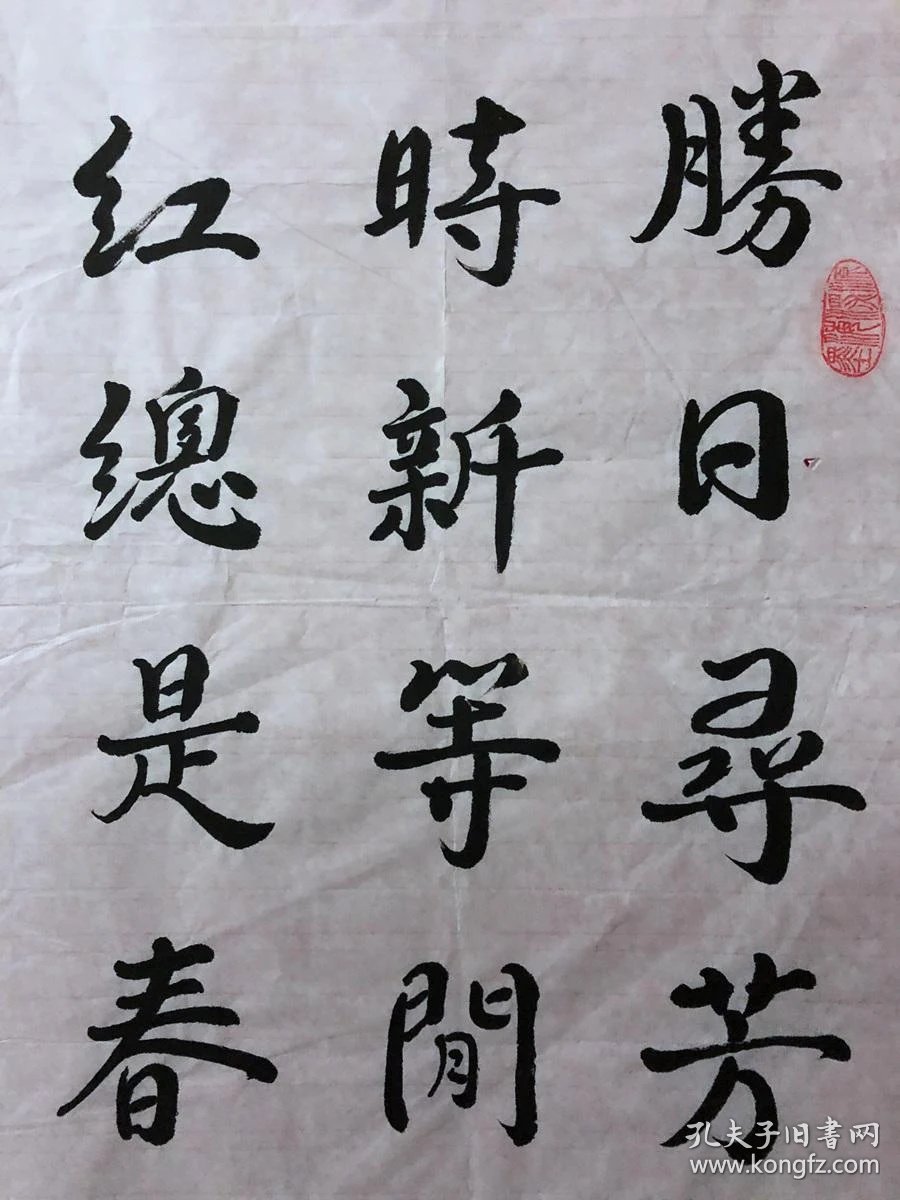 勝日尋芳
時新等閒
紅總是春
孔夫子旧書网
www.kongfz.com